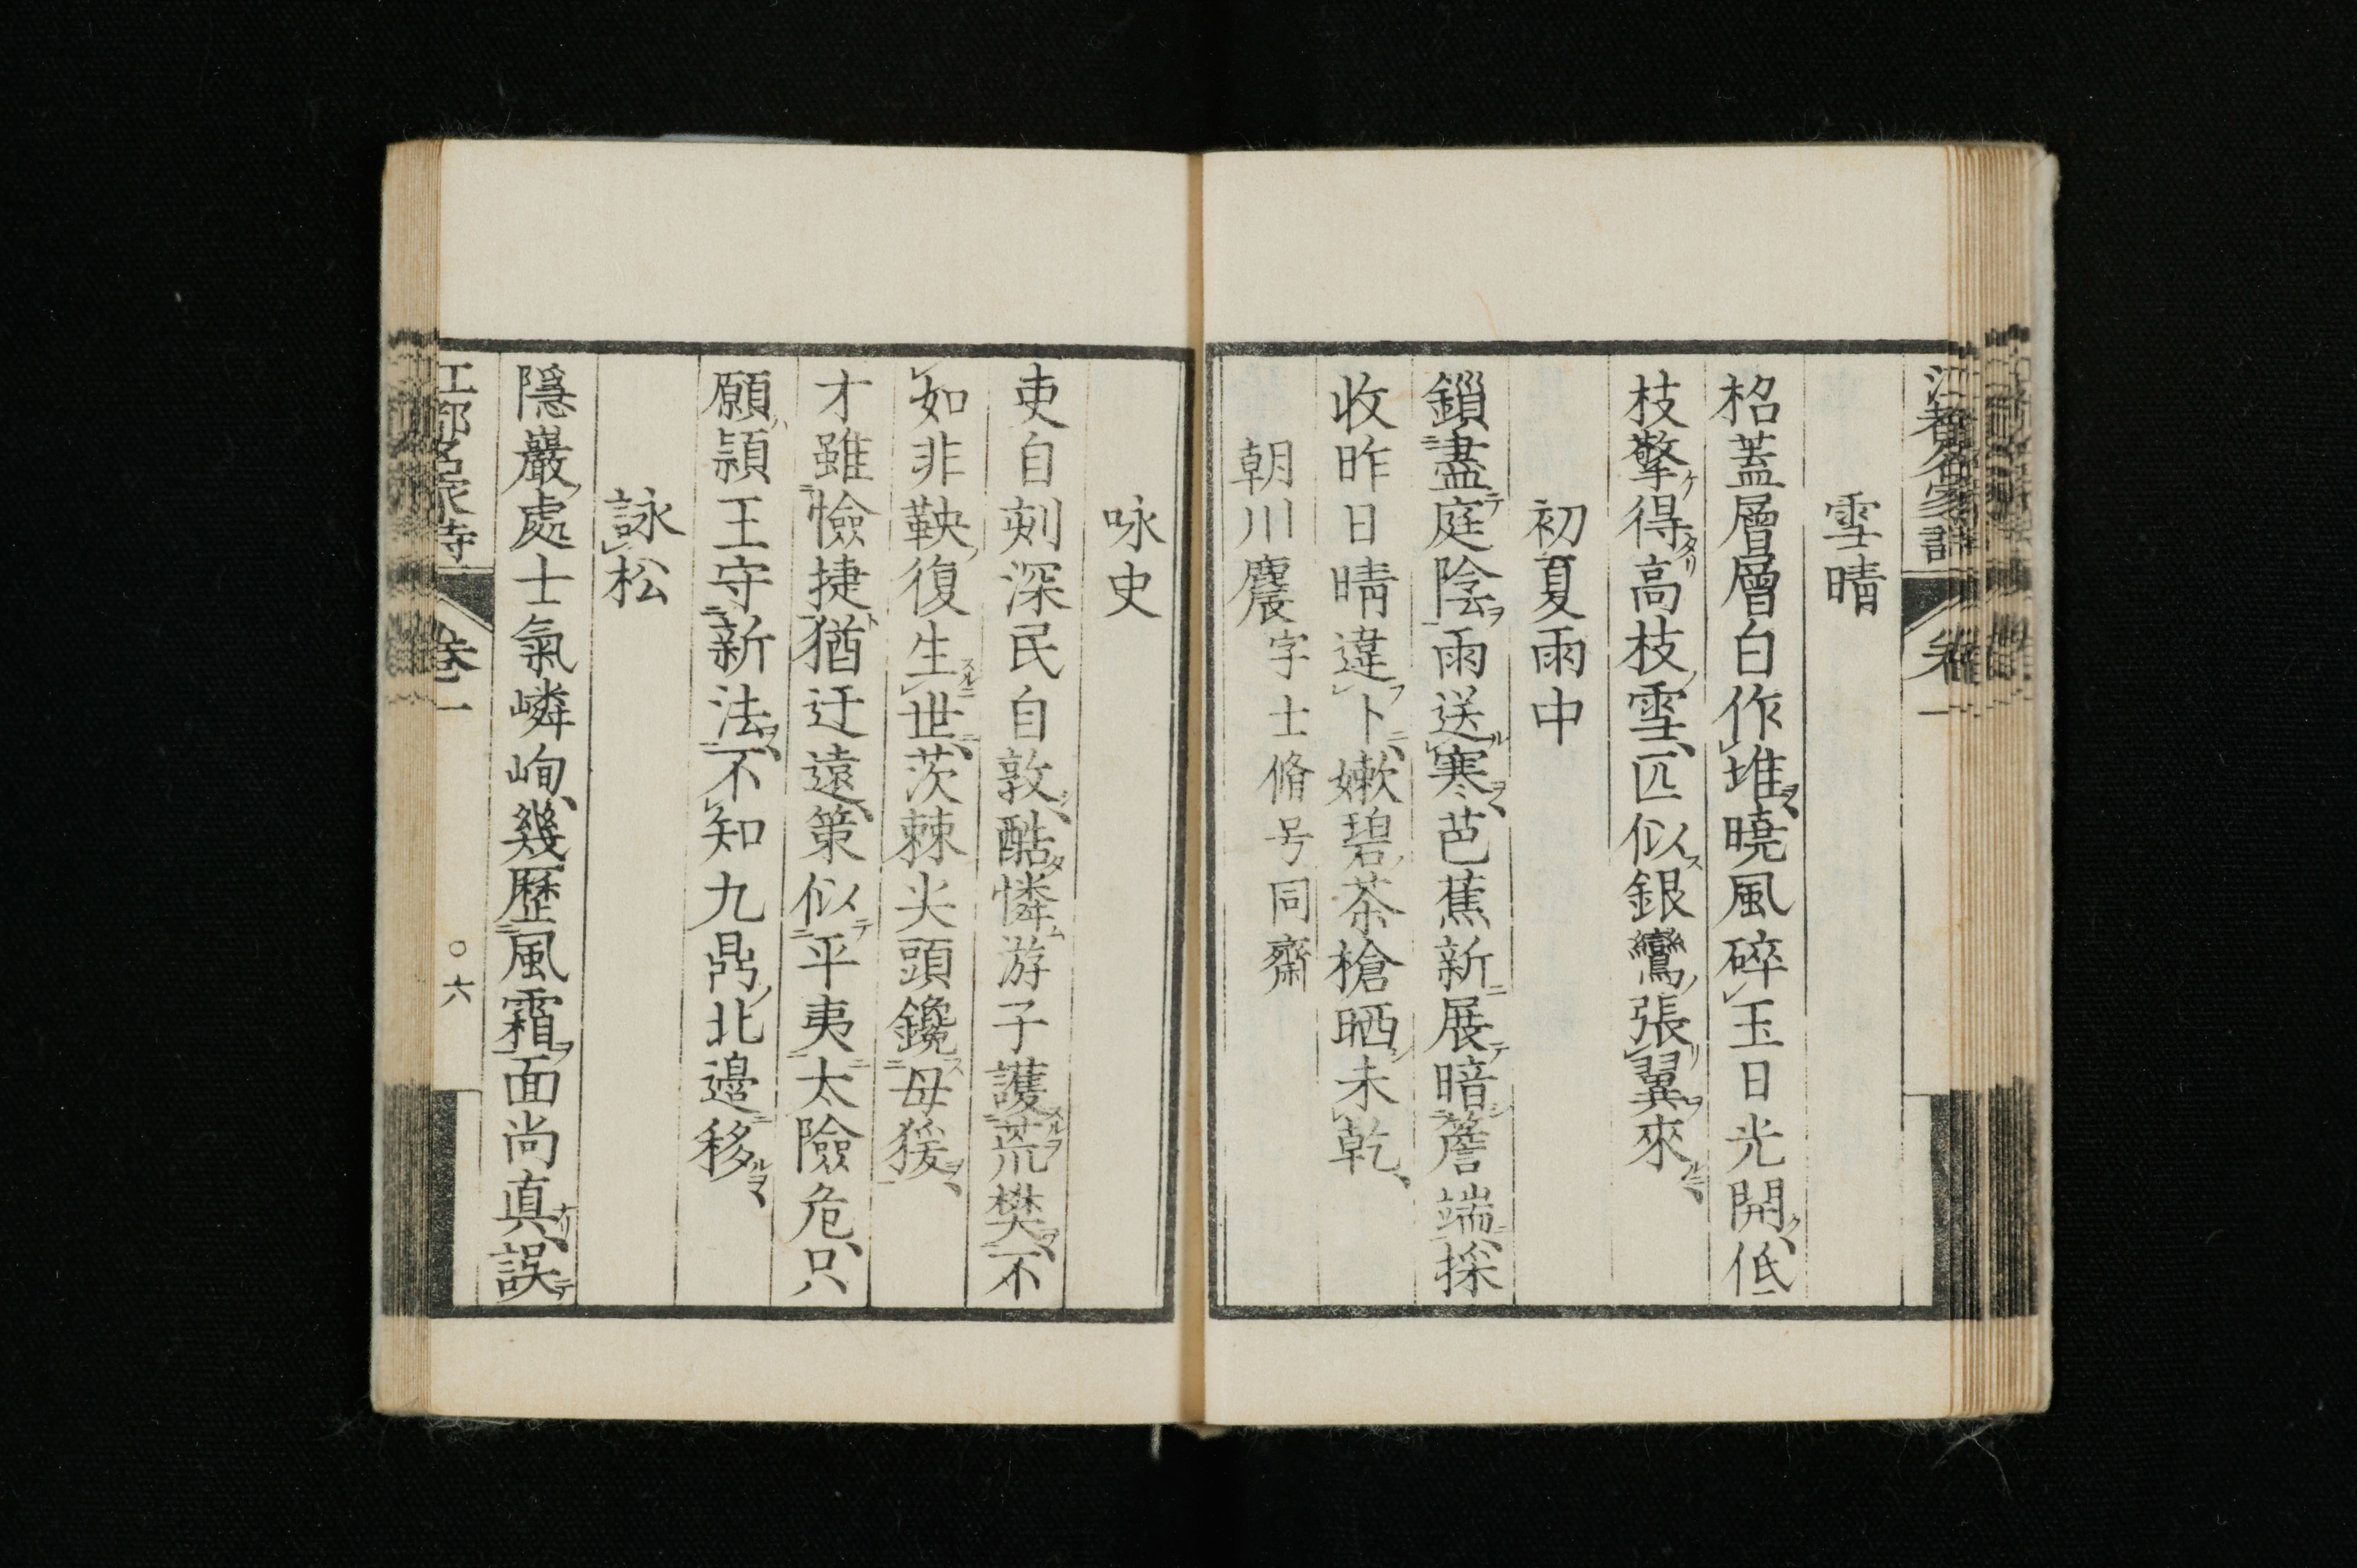 江都名家詩 卷一
雪晴
柖蓋層層白作堆曉風碎玉日光開低
枝擎得高枝雪匹似銀鸞張翼來
初夏雨中
鎻盡庭陰雨送寒芭蕉新展暗簷端採
收昨日晴違卜嫰碧茶槍晒未乾
朝川麎字士脩号同齋
咏史
吏自刻深民自敦酷憐游子護荒樊不
如非鞅復生世茨棘尖頭鑱母猨
才雖憸捷猶迂遠策似平夷太險危只
願潁王守新法不知九鼎北邊移
詠松
隱巖處士氣嶙峋幾歷風霜面尚真誤
江都名家詩 卷一 ○六